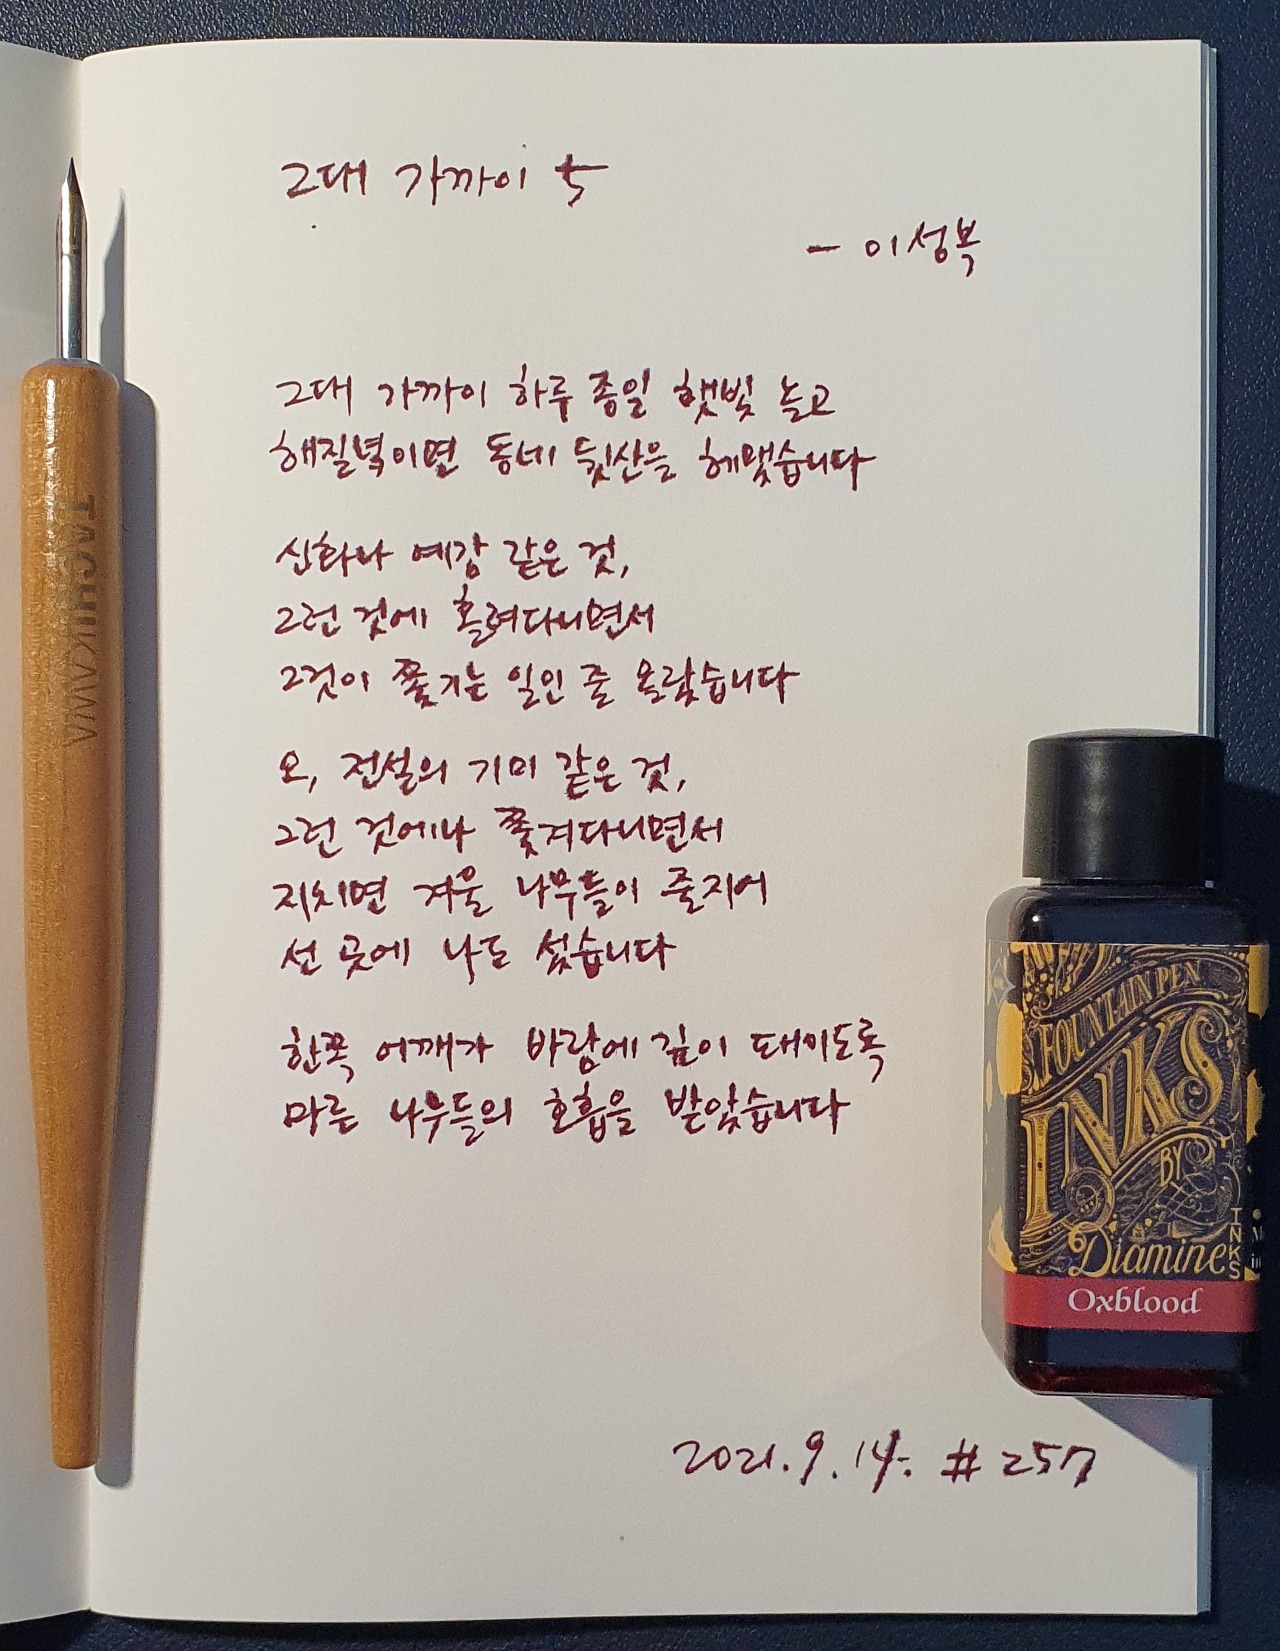 그대 가까이 5
- 이성복
그대 가까이 하루 종일 햇빛 놀고
해질녘이면 동네 뒷산을 헤맸습니다
신화나 예감 같은 것,
그런 것에 홀려다니면서
그것이 쫓기는 일인 줄 몰랐습니다
오, 전설의 기미 같은 것,
그런 것에나 쫓겨다니면서
지치면 겨울 나무들이 줄지어
선 곳에 나도 섰습니다
한쪽 어깨가 바람에 깊이 패이도록
마른 나무들의 호흡을 받았습니다
2021. 9. 14. # 257
TACHIKAWA
FOUNTAIN PEN
INKS
BY
Diamine
INKS
Oxblood